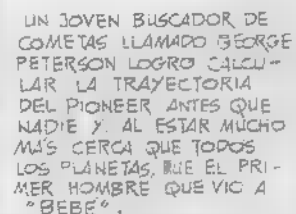 UN JOVEN BUSCADOR DE
COMETAS LLAMADO GEORGE
PETERSON LOGRO CALCU-
LAR LA TRAYECTORIA
DEL PIONEER ANTES QUE
NADIE Y. AL ESTAR MUCHO
MÁS CERCA QUE TODOS
LOS PLANETAS, FUE EL PRI-
MER HOMBRE QUE VIO A
"BEBE".